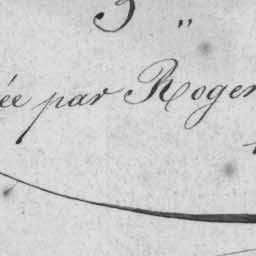 3 "
ée par Roger